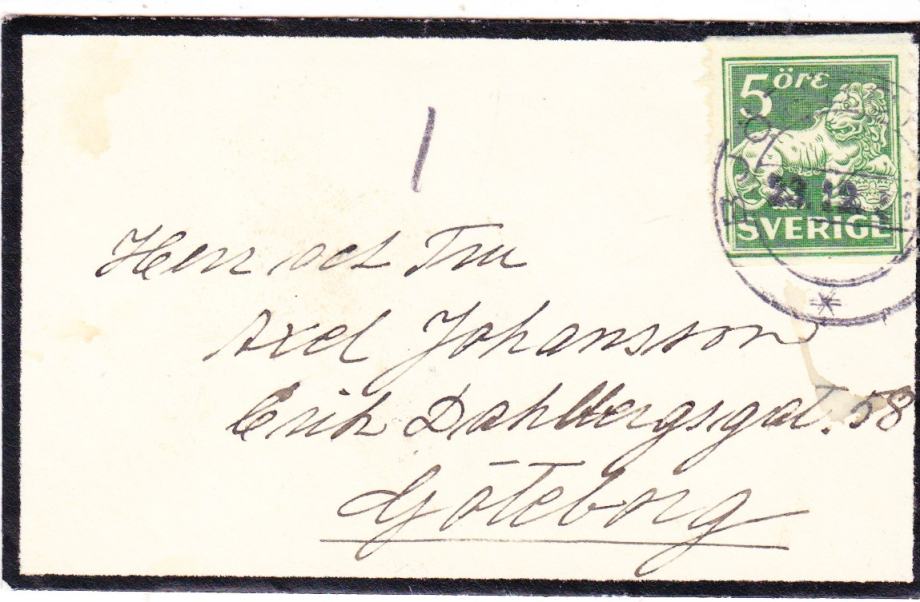 5 öre
23.12
SVERIGE
1
Herr och Fru
Axel Johansson
Erik Dahlbergsgat. 58
Göteborg